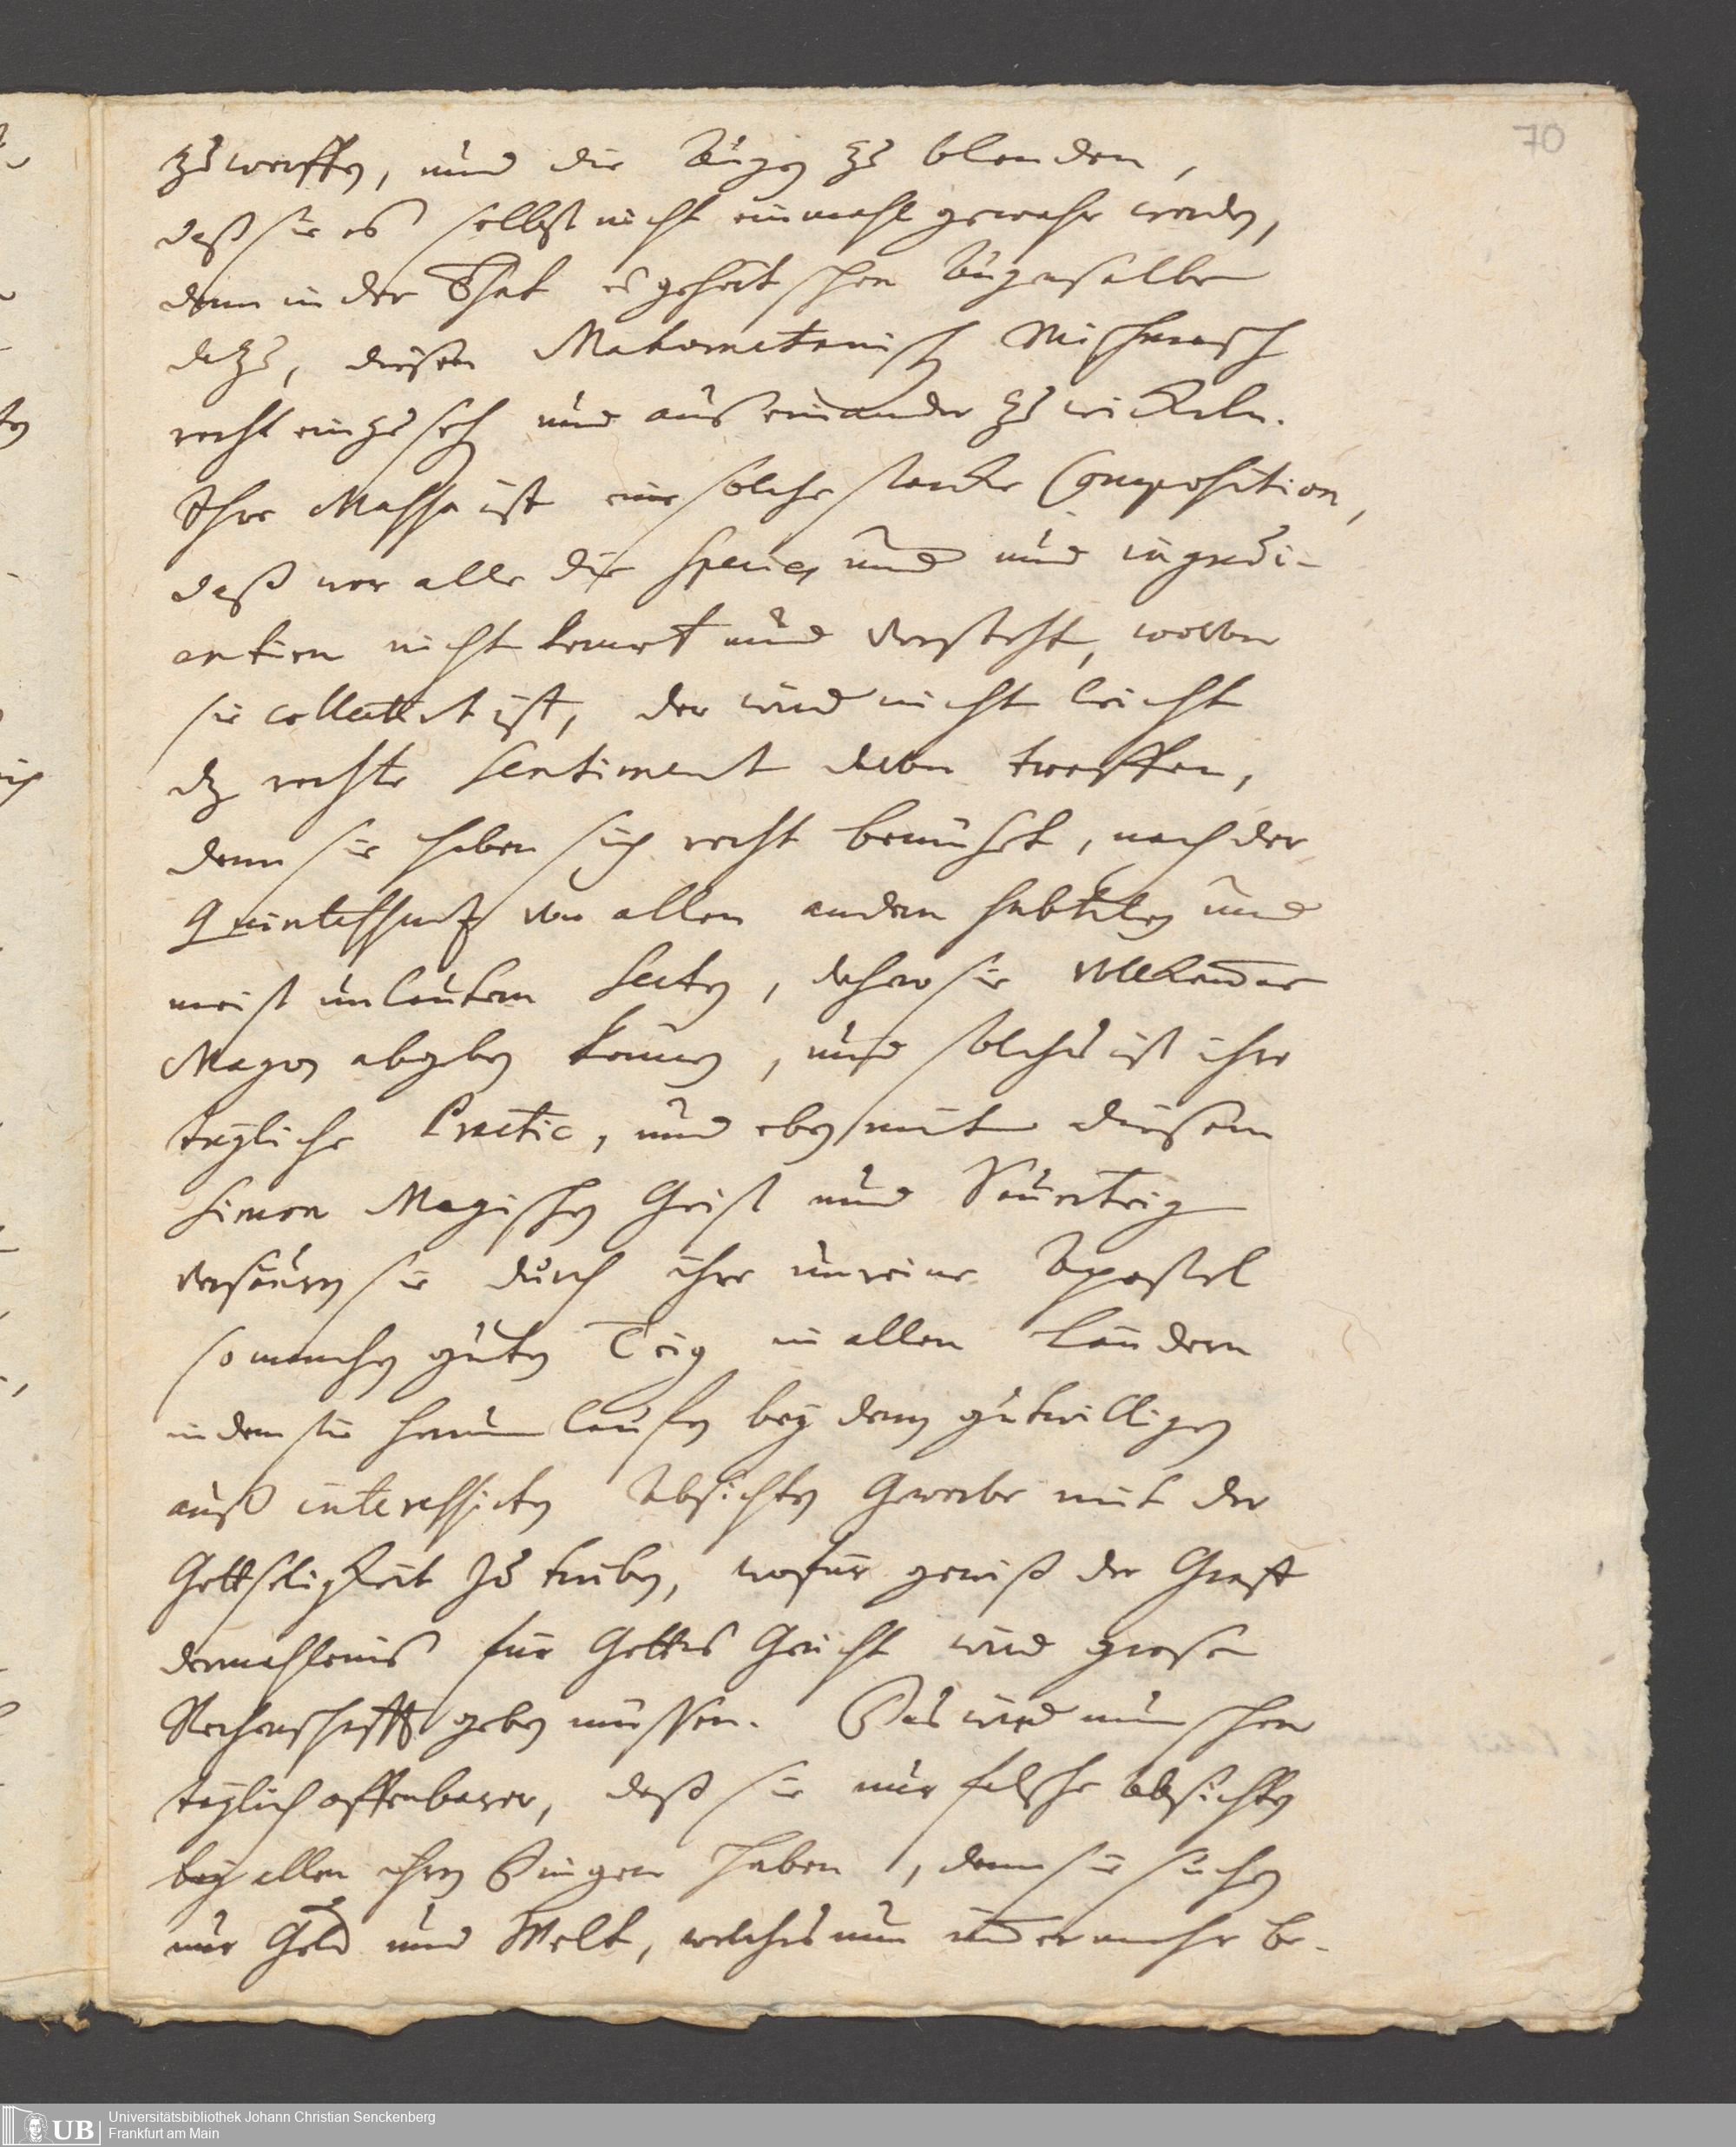 70
zu werffen, und die Augen zu blenden,
daß sie es selbst nicht einmahl gewahr werden,
denn in der That es gehört schon Augensalbe
dazu, diesen Mahometanisch Mischmasch
recht einzusehen und auseinander zu wickeln.
Ihre Massa ist eine solche starcke Composition,
daß wer alle die Species und und ingredi-
entien nicht kennet und versteht, wovon
sie collectirt ist, der wird nicht leicht
dz rechte sentiment davon treffen,
denn sie haben sich recht bemühet, nach der
quintessentz von allen andern subtilen und
meist unlautern Secten, daher sie vollkommene
Magos abgeben können, und solches ist ihre
tägliche Practic, und eben mit diesem
Simon Magischen Geist und Sauerteig
versäuern sie durch ihre unreine Apostel
so manchen guten Teig in allen Ländern
indem sie herum lauffen bey denen gutwilligen
auß interessirten Absichten Gewerbe mit der
Gottseligkeit zu treiben, wofür gewiß der Graff
dermahleins für Gottes Gericht wird grose
Rechenschafft geben müssen. Das wird nun schon
täglich offenbarer, daß sie nur falsche absichten
bey allen ihren Dingen haben, denn sie suchen
nur Geld und Welt, welches nun immer mehr be-
Universitätsbibliothek Johann Christian Senckenberg
Frankfurt am Main
UB